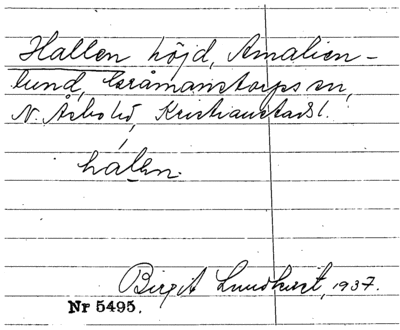 Hallen höjd, Amalien-
lund, Gråmanstorps sn,
N. Åsbo hd, Kristianstads l.
hálen.
Birgit Lundkvist, 1937.
Nr 5495.